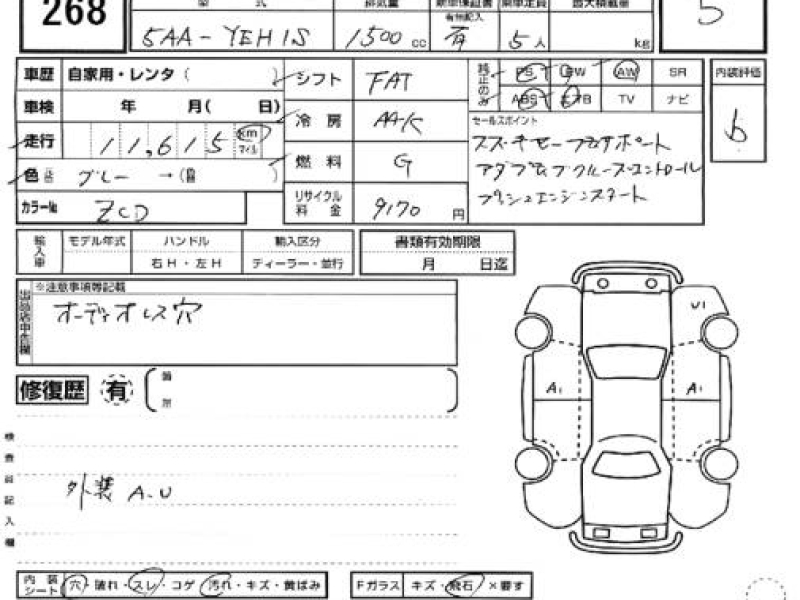 268
型 式
排気量
新車保証書
有無記入
乗車定員
最大積載量
5AA-YEH1S
1500 cc
有
5人
kg
5
車歴 自家用・レンタ( )
シフト FAT
純正のみ
PS PW AW SR
ABS エアB TV ナビ
内装評価
b
車検 年 月( 日)
冷房 AAC
走行 11,615 km マイル
セールスポイント
スズキセーフティサポート
アダプティブクルーズコントロール
プッシュエンジンスタート
色 グレー →( )
燃料 G
カラーNo ZCD
リサイクル料金 9170 円
輸入車
モデル年式 ハンドル 輸入区分
右H・左H ディーラー・並行
書類有効期限
月 日迄
出品店申告欄
※注意事項等記載
オーディオレス穴
修復歴 有
検査員記入欄
外装 A.U
U1
A1
A1
内装シート 穴・破れ・スレ・コゲ・汚れ・キズ・黄ばみ
Fガラス キズ・飛石・×要す